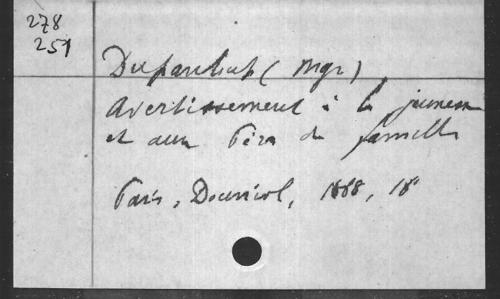 278
251
Dupanloup (Mgr)
Avertissement à la jeunesse
et aux Pères de famille
Paris, Douniol, 1868, 18°